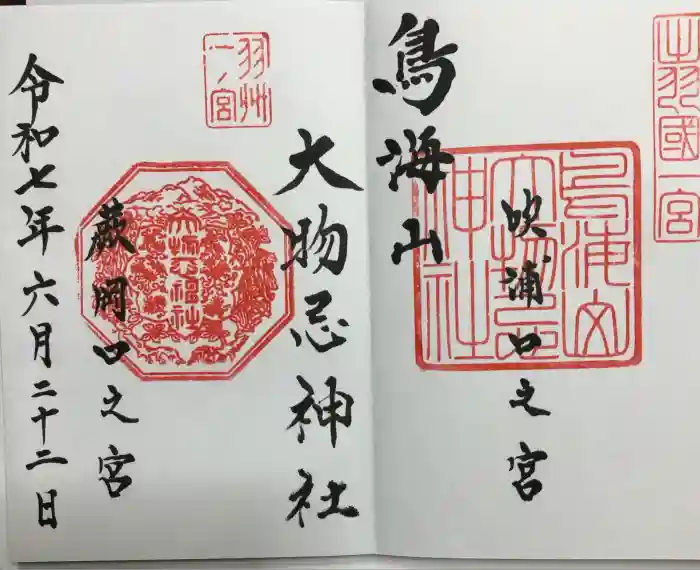 出羽國一宮
吹浦口之宮
鳥海山
鳥海山
大物忌
神社
大物忌神社
羽州
一ノ宮
蕨岡口之宮
大物忌神社
令和七年六月二十二日